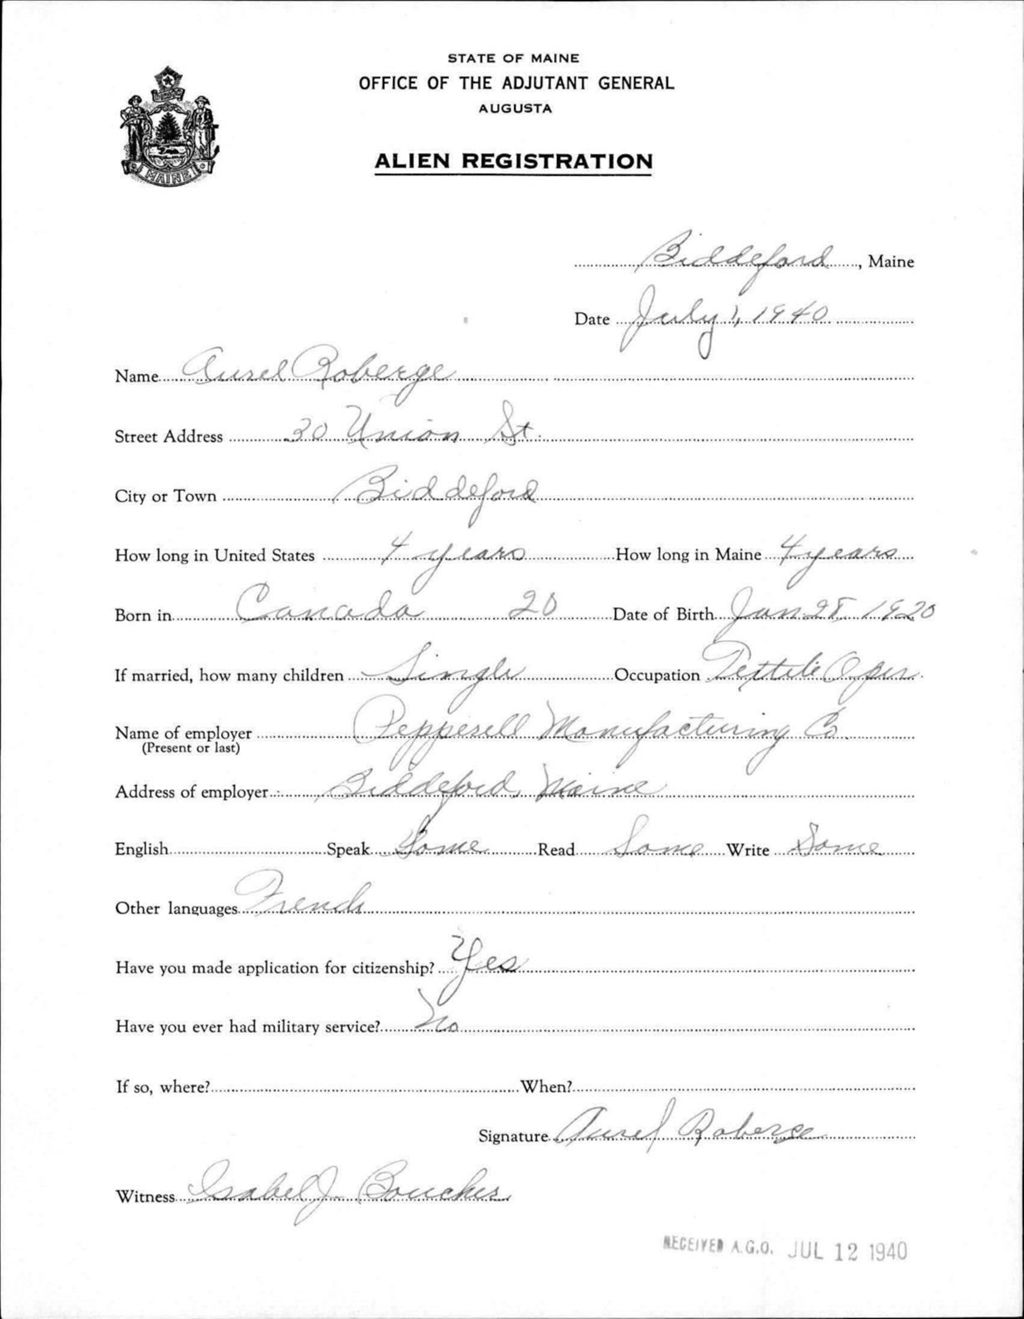 STATE OF MAINE
OFFICE OF THE ADJUTANT GENERAL
AUGUSTA
ALIEN REGISTRATION
MAINE
Biddeford, Maine
Date July 1, 1940
Name Aurel Roberge
Street Address 30 Union St.
City or Town Biddeford
How long in United States 4 years How long in Maine 4 years
Born in Canada 20 Date of Birth Jan 28 1920
If married, how many children Single Occupation Textile Oper.
Name of employer Pepperell Manufacturing Co.
(Present or last)
Address of employer Biddeford, Maine
English Speak Some Read Some Write Some
Other languages French
Have you made application for citizenship? Yes
Have you ever had military service? No
If so, where? When?
Signature Aurel Roberge
Witness Isabel J. Boucher
RECEIVED A.G.O. JUL 12 1940